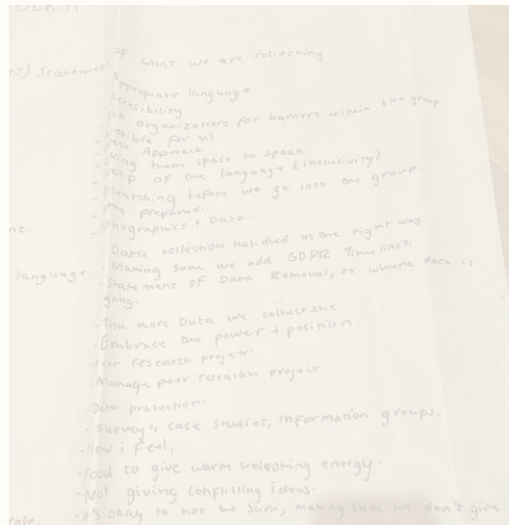 of what we are collecting.
es) Statement
Appropriate language
Accessibility.
organizations for barriers within the group.
for us.
Approach
Giving them space to speak.
of the language (inclusivity)
before we go into the group.
prepared.
+ Data.
Data collection handled in the right way
- Making sure we add GDPR Timelines.
language
- Statement of Data Removal, or where data is
going.
- The more Data we collect the
- Embrace the power + position.
- Peer research project
- Manage peer research project
- Data protection.
- Surveys, case studies, information groups.
- How i feel,
- Food to give warm welcoming energy.
- Not giving conflicting ideas.
- It's okay to not be sure, making sure we don't give
role.